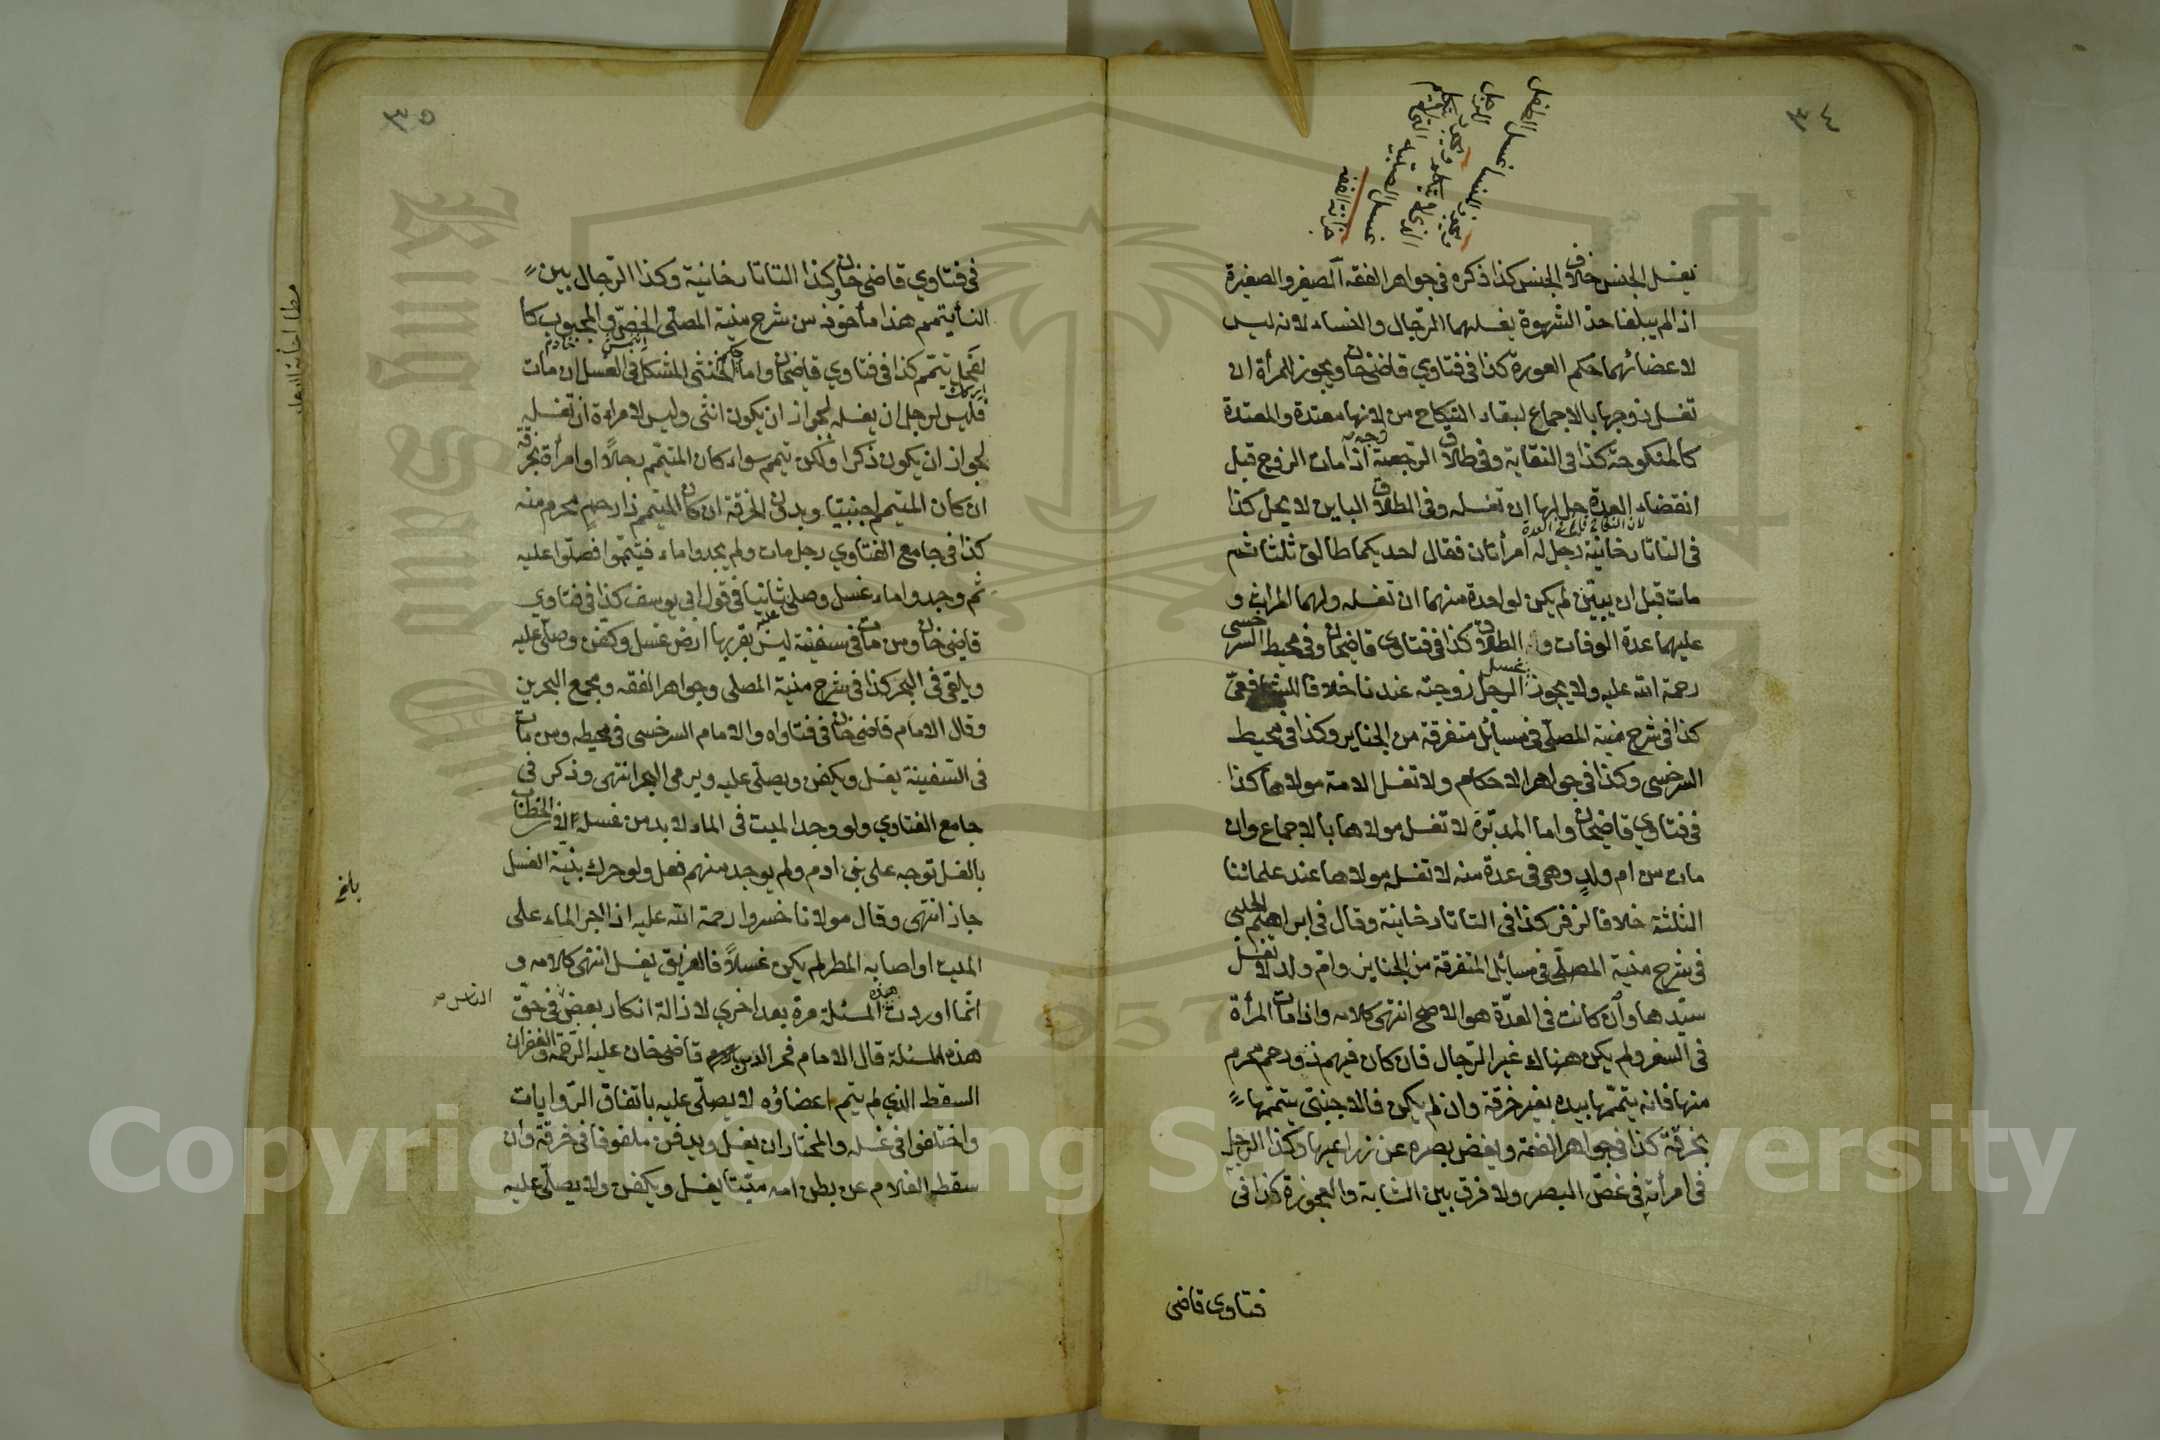 ٣٤
ويجوز للنساء غسل الطفل
الرجل
غسل الصبية التي
خزانة الفقه
يغسل الجنس خلاف الجنس كذا ذكره في جواهر الفقه الصغير والصغيرة
اذا لم يبلغا حد الشهوة يغسلهما الرّجال والنساء لانه ليس
لاعضائهما حكم العورة كذا في فتاوي قاضي خان ويجوز للمرأة ان
تغسل زوجها بالاجماع لبقاء النكاح من لانها معتدة والمعتدة
كالمنكوحة كذا في النقاية وفي طلاق الرّجعية اذا مات الزوج قبل
انقضاء العدة حل لها ان تغسله وفي الطلاق الباين لا يحل كذا
في التاتارخانية رجل له امرأتان فقال احديكما طالق ثلثا ثم
مات قبل ان يبيّن لم يكن لواحدة منهما ان تغسله ولهما الميراث و
عليهما عدة الوفات والطلاق كذا في فتاوي قاضيخان وفي محيط السرخسي
رحمة الله عليه ولا يجوز غسل الرجل زوجته عندنا خلافا للشافعيّ
كذا في شرح منية المصلّي في مسائل متفرقة من الجنايز وكذا في محيط
السرخسي وكذا في جواهر الاحكام ولا تغسل الامة مولاها كذا
في فتاوي قاضيخان واما المدبّرة لا تغسل مولاها بالاجماع وان
مات من ام ولدٍ وهي في عدة منه لا تغسل مولاها عند علمائنا
الثلثة خلافا لزفر كذا في التاتارخانية وقال في ابراهيم الحلبي
في شرح منية المصلّي في مسائل المتفرقة من الجنايز وامّ ولد لا تغسل
سيّدها وان كانت في العدّة هو الاصح انتهى كلامه واذا مات المرأة
في السفر ولم يكن هناك غير الرّجال فان كان فيهم ذو رحم محرم
منها فانه يتمّمها بيده بغير خرقة وان لم يكن فالاجنبيّ يتمّمها
بخرقة كذا في جواهر الفقه ويغض بصره عن زراعيها وكذا الرجل
في امرأته في غضّ البصر ولا فرق بين الشابة والعجوزة كذا في
فتاوي قاضي
٣٥
في فتاوي قاضي خان وكذا التاتارخانية وكذا الرّجال بين
النسأ يتمم هذا مأخوذ من شرح منية المصلّي الخصيّ والمجبوب كا
لفحل يتمم كذا في فتاوي قاضيخان واما حكم الخنثى المشكل في الغسل ان مات
فليس لرجل ان يغسله لجواز ان يكون انثى وليس لامراءة ان تغسله
لجواز ان يكون ذكرا ولكن تيمم سواء كان المتيمّم رجلاً او امرأة بخرقة
ان كان المتيمم اجنبيّا وبدون الخرقة ان كان المتيمّم ذا رحمٍ محرم منه
كذا في جامع الفتاوي رجل مات ولم يجدوا ماء فيتمّموا فصلّوا عليه
ثم وجدوا ماء غسل وصلي ثانيا في قول ابي يوسف كذا في فتاوي
قاضي خان ومن مات في سفينة ليس بقربها ارض غسل وكفن وصلّي عليه
ويلقى في البحر كذا في شرح منية المصلي وجواهر الفقه ومجمع البحرين
وقال الامام قاضي خان في فتاواه والامام السرخسي في محيطه ومن مات
في السّفينة يغسل ويكفن ويصلّي عليه ويرمى البحر انتهى وذكر في
جامع الفتاوي ولو وجد الميت في الماء لا بد من غسله لان الخطاب
بالغسل توجه على بني ادم ولم يوجد منهم فعل ولو حرك بنيّة الغسل
جاز انتهى وقال مولانا خسروا رحمة الله عليه اذا جر الماء على
الميت او اصابه المطر لم يكن غسلاً فالغريق يغسل انتهى كلامه و
انّما اوردت هذه المسئلة مرة بعد اخري لازالة انكار بعض في حقّ
الناس
هذه المسئلة قال الامام فخر الدين قاضي خان عليه الرّحمة والغفران
السقط الذي لم يتم اعضاؤه لا يصلّي عليه باتفاق الرّوايات
واختلفوا في غسله والمختار ان يغسل ويدفن ملفوفا في خرقة وان
سقط الغلام عن بطن امه ميّتا يغسل ويكفن ولا يصلّي عليه
Copyright © King Saud University
King Saud University
1957